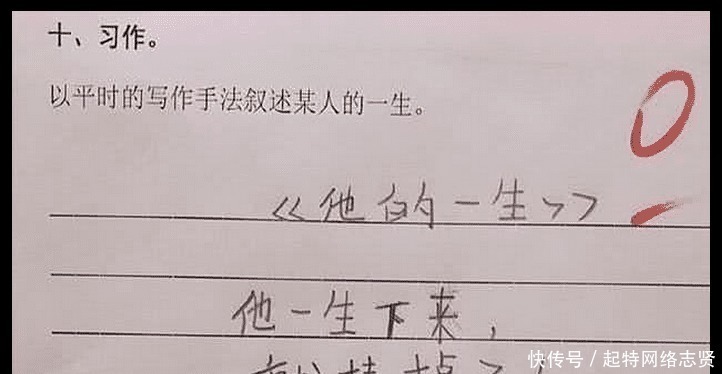 十、习作。
以平时的写作手法叙述某人的一生。
0
《他的一生》
他一生下来,
掉了
快传号/起特网络志贤